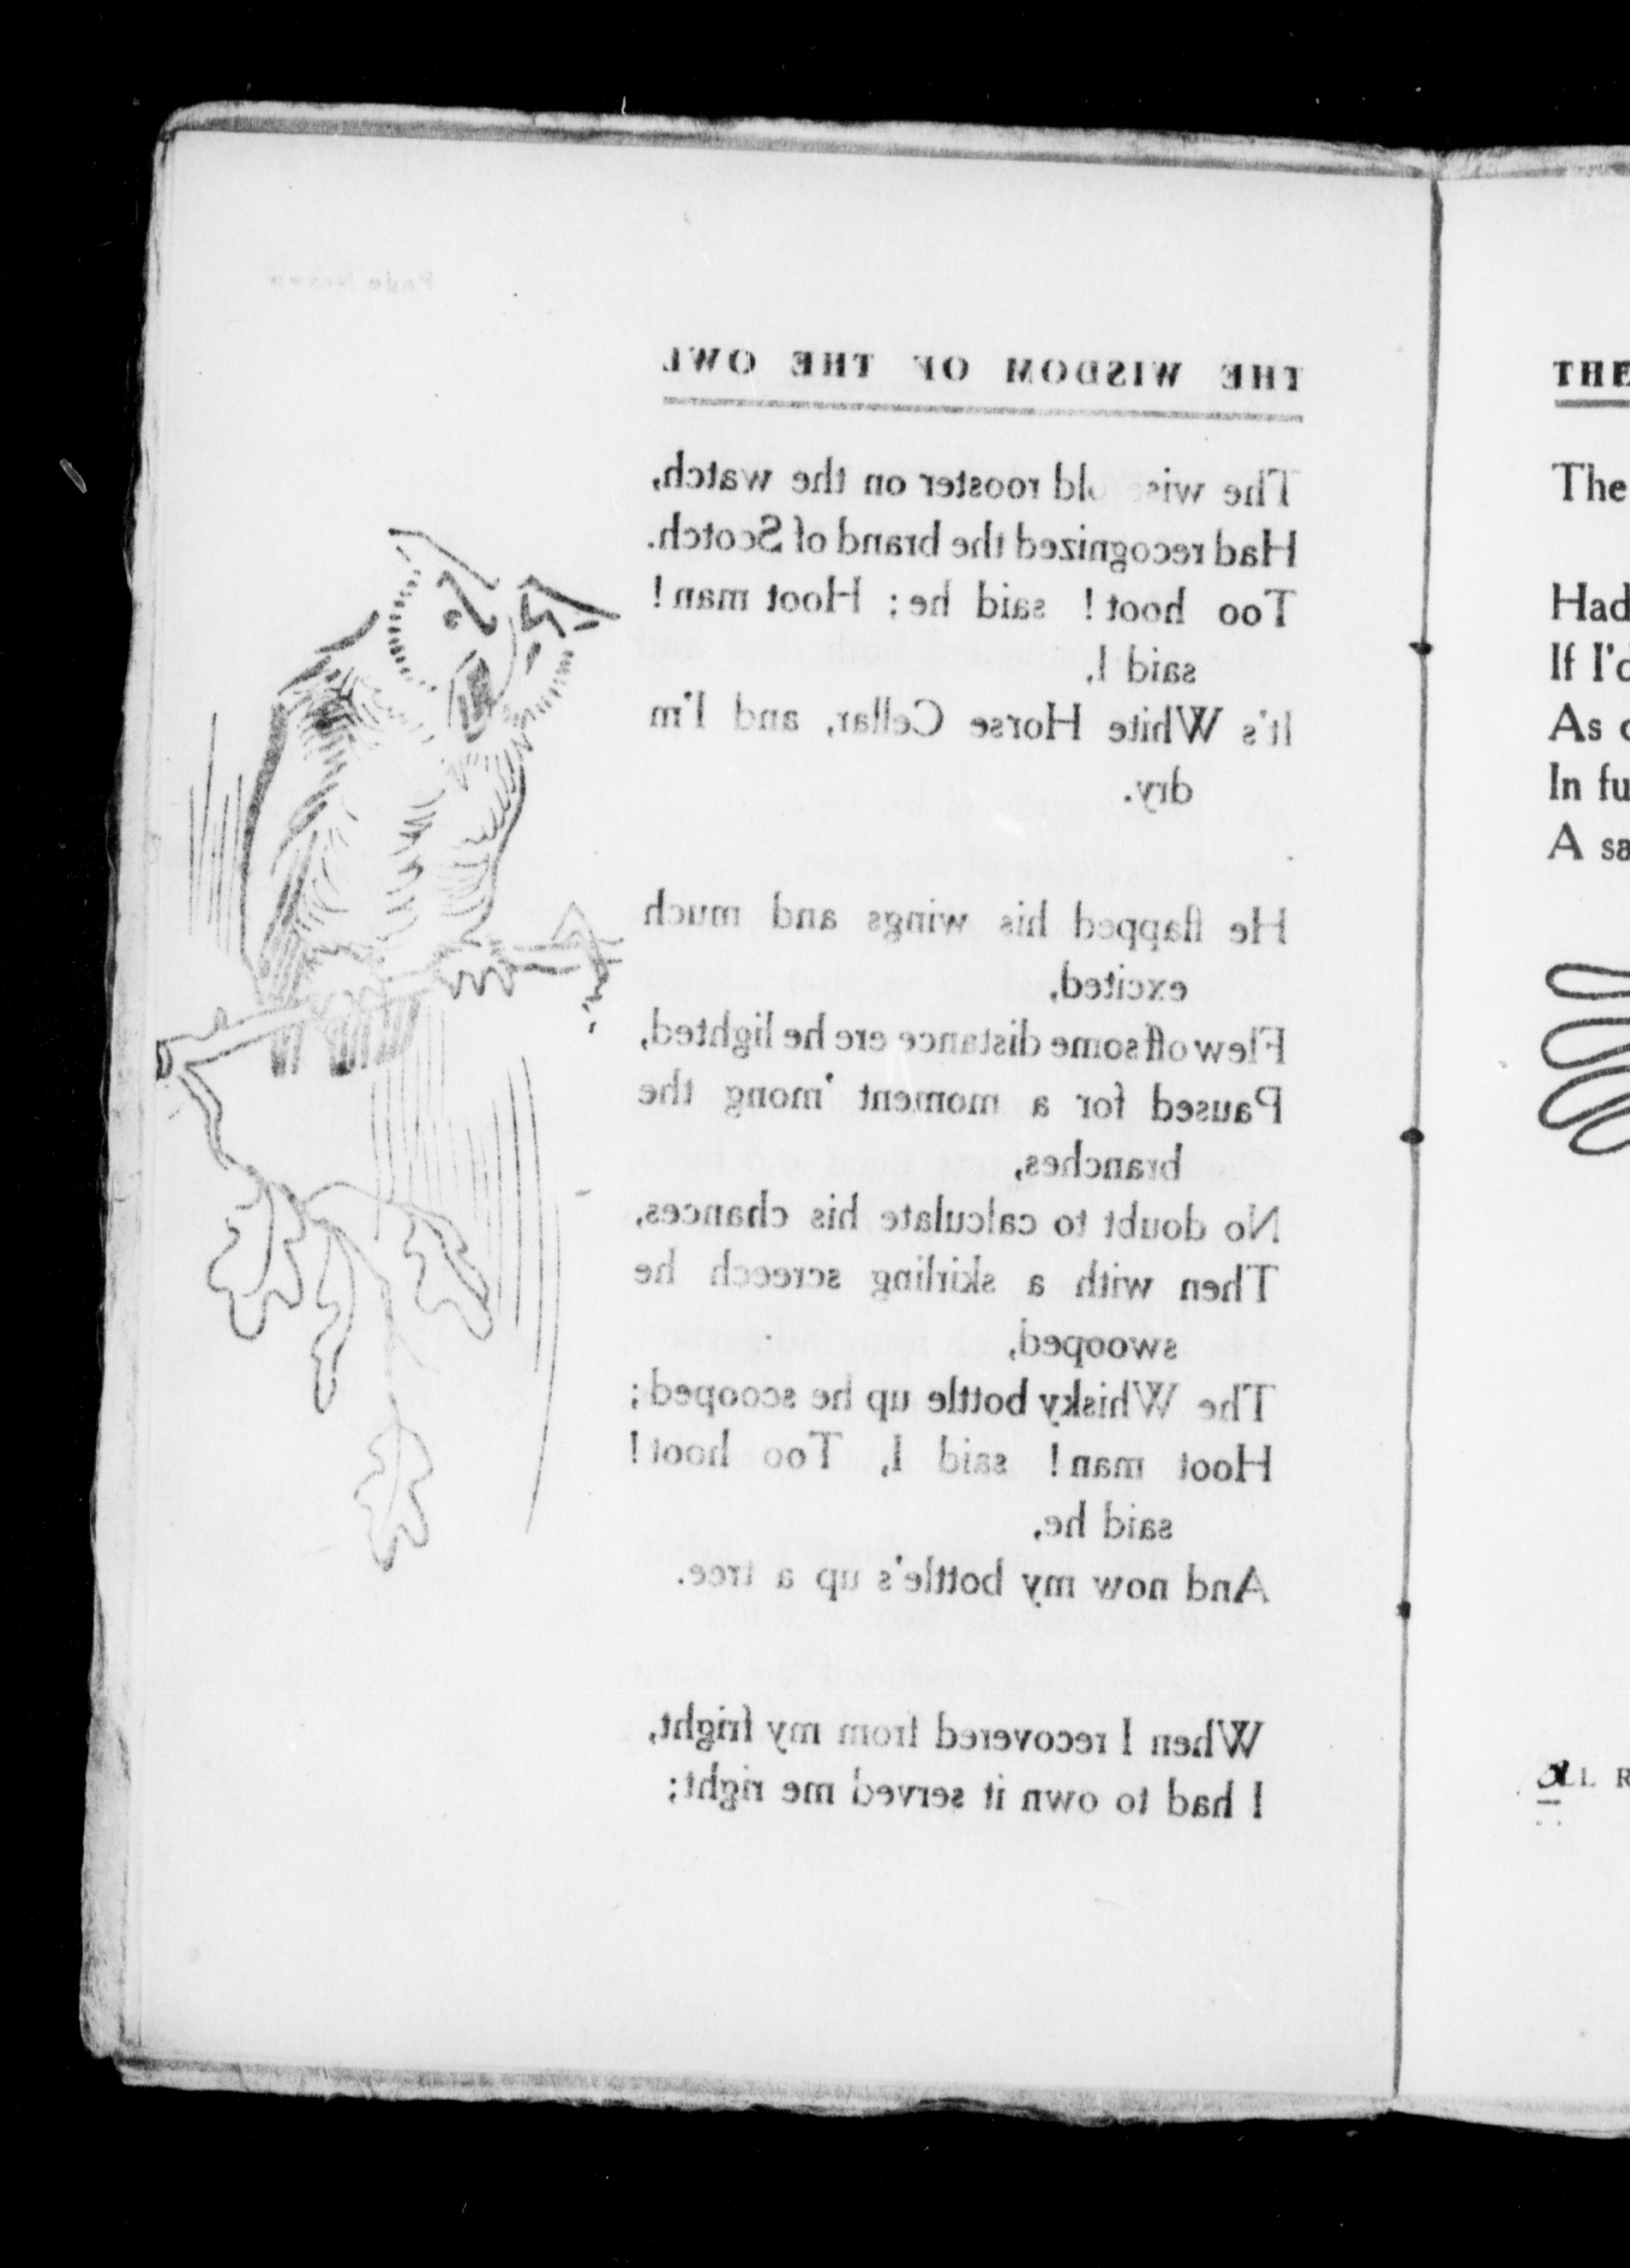 Page Seven
THE WISDOM OF THE OWL
The wise old rooster on the watch,
Had recognized the brand of Scotch.
Too hoot! said he; Hoot man!
said I,
It's White Horse Cellar, and I'm
dry.
He flapped his wings and much
excited,
Flew off some distance ere he lighted,
Paused for a moment 'mong the
branches,
No doubt to calculate his chances,
Then with a skirling screech he
swooped,
The Whisky bottle up he scooped;
Hoot man! said I, Too hoot!
said he,
And now my bottle's up a tree.
When I recovered from my fright,
I had to own it served me right;
THE
The
Had
If I'd
As
In fu
A sa
LL R